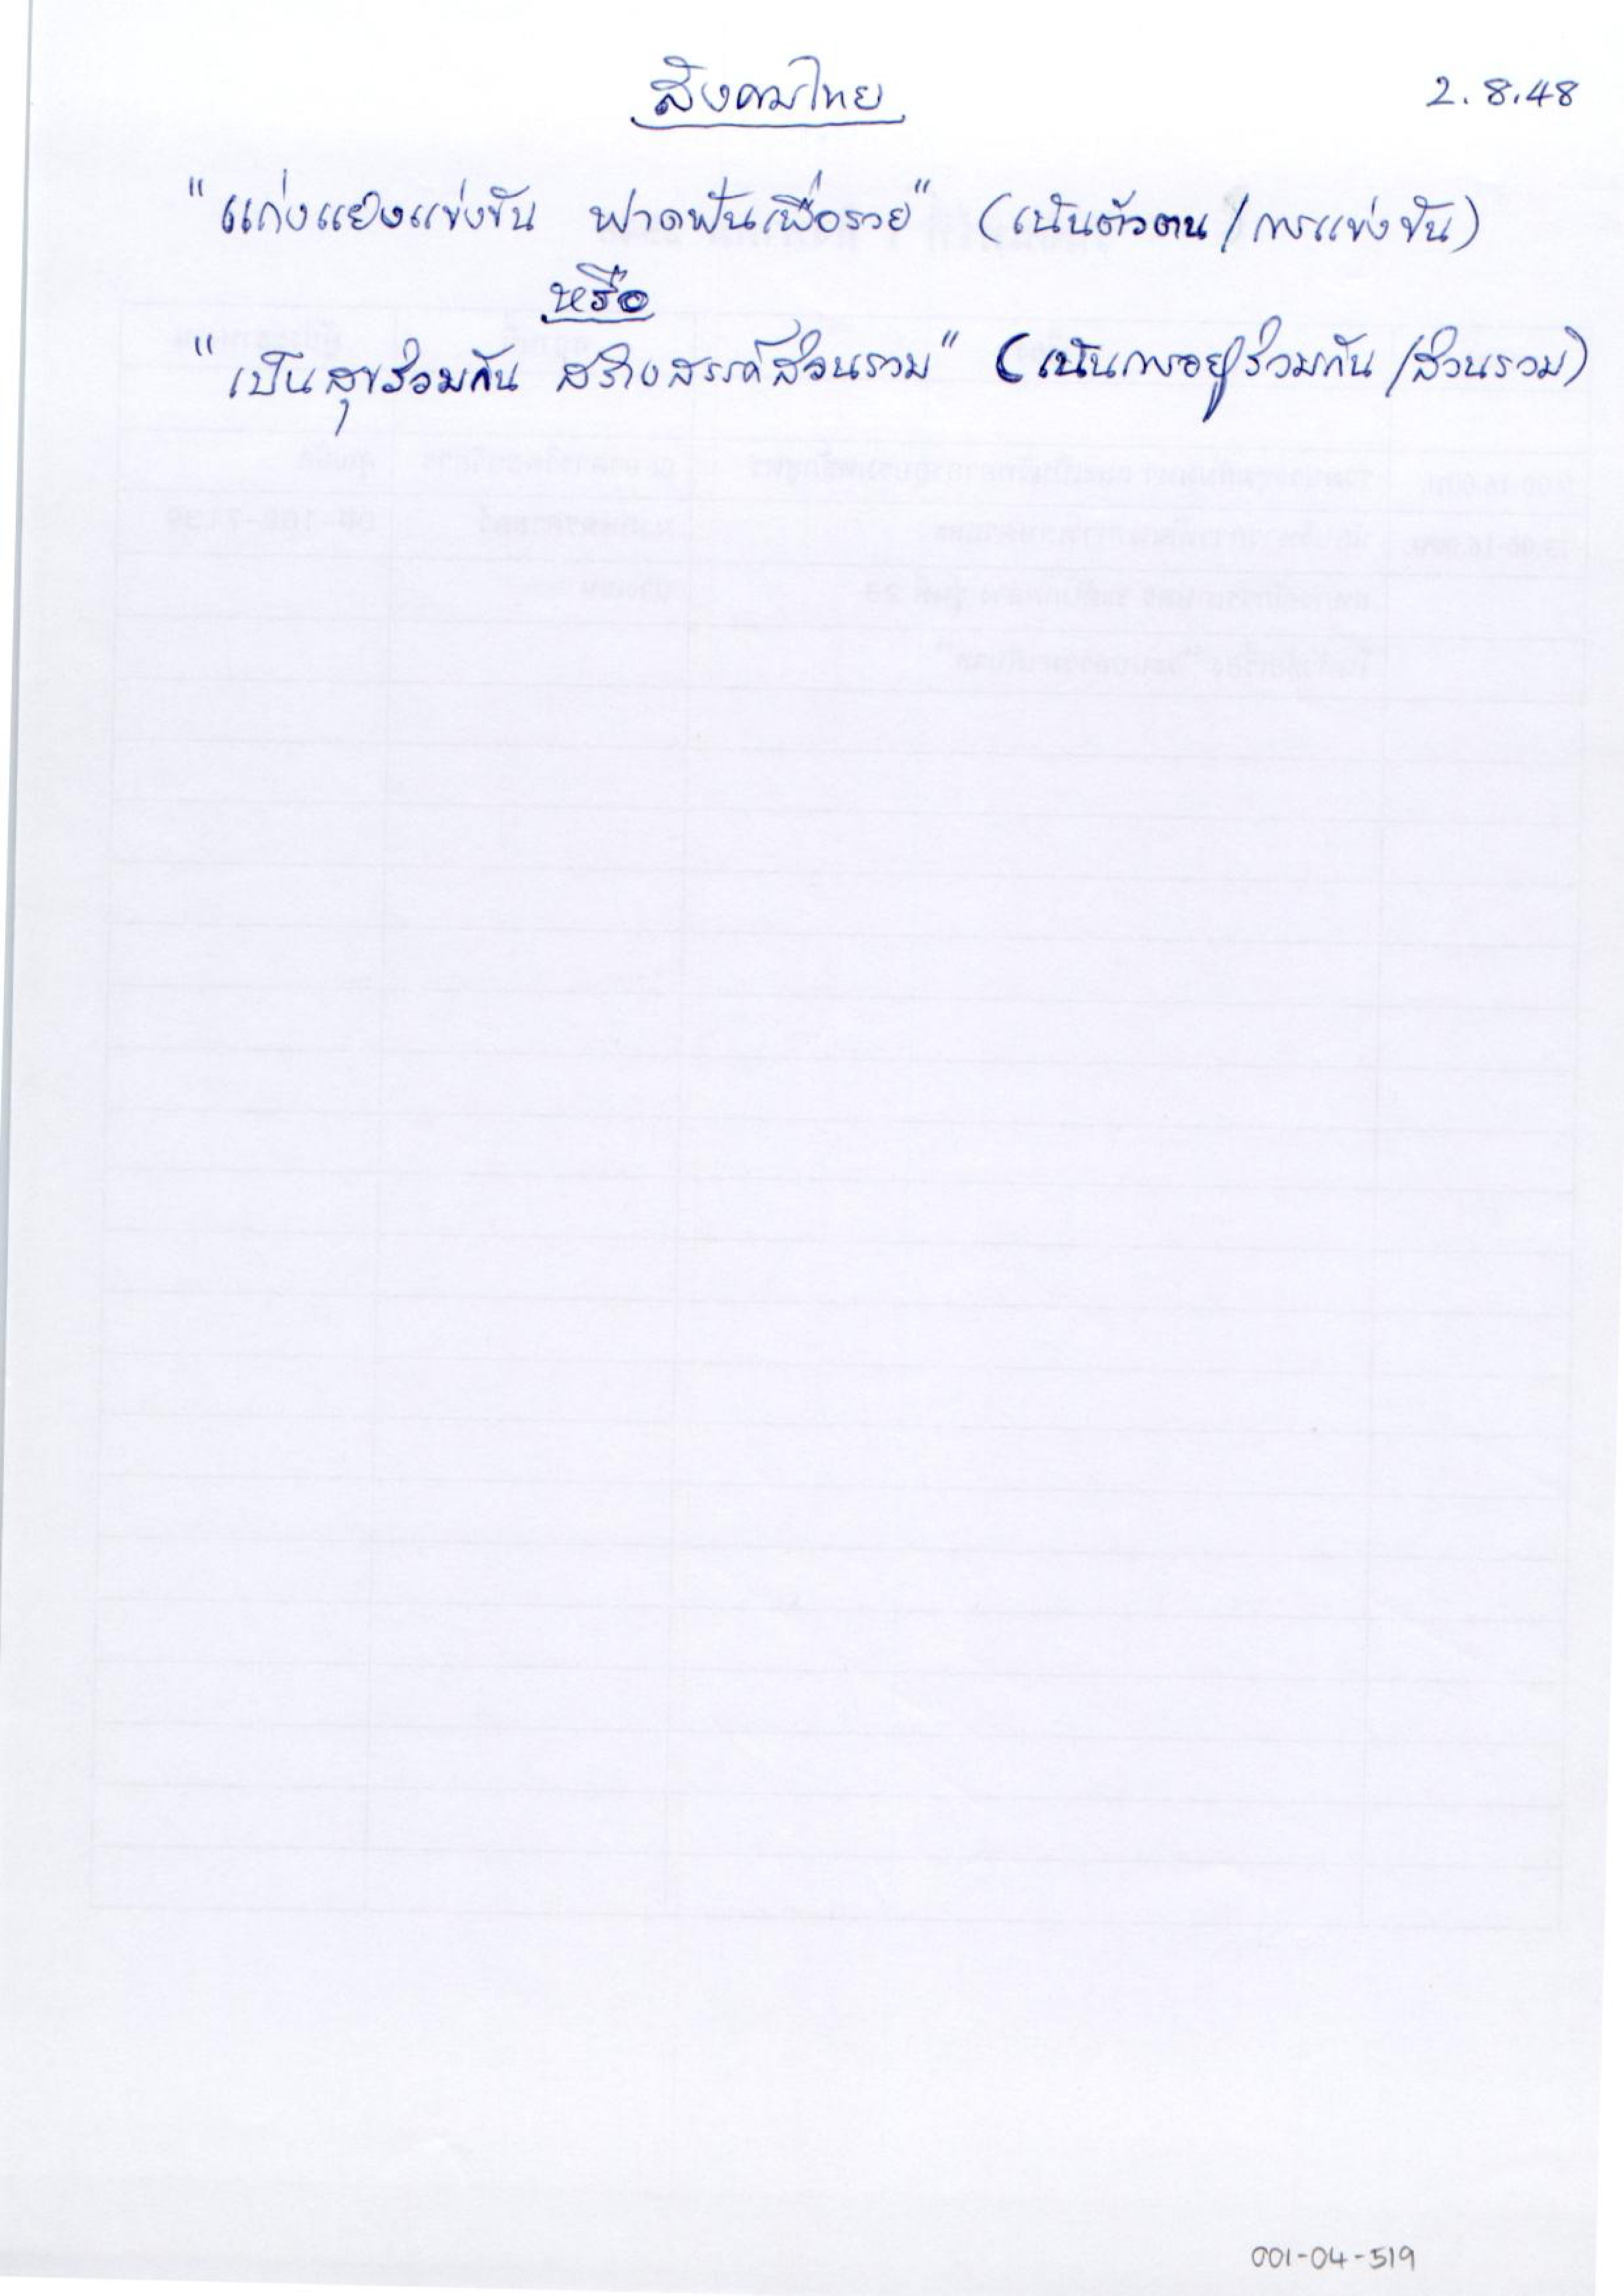 สังคมไทย
2.8.48
"แก่งแย่งแข่งขัน ฟาดฟันเพื่อรวย" (เน้นตัวตน/การแข่งขัน)
หรือ
"เป็นสุขร่วมกัน สร้างสรรค์ส่วนรวม" (เน้นการอยู่ร่วมกัน/ส่วนรวม)
001-04-519